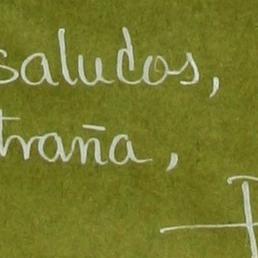 saludos,
traña,